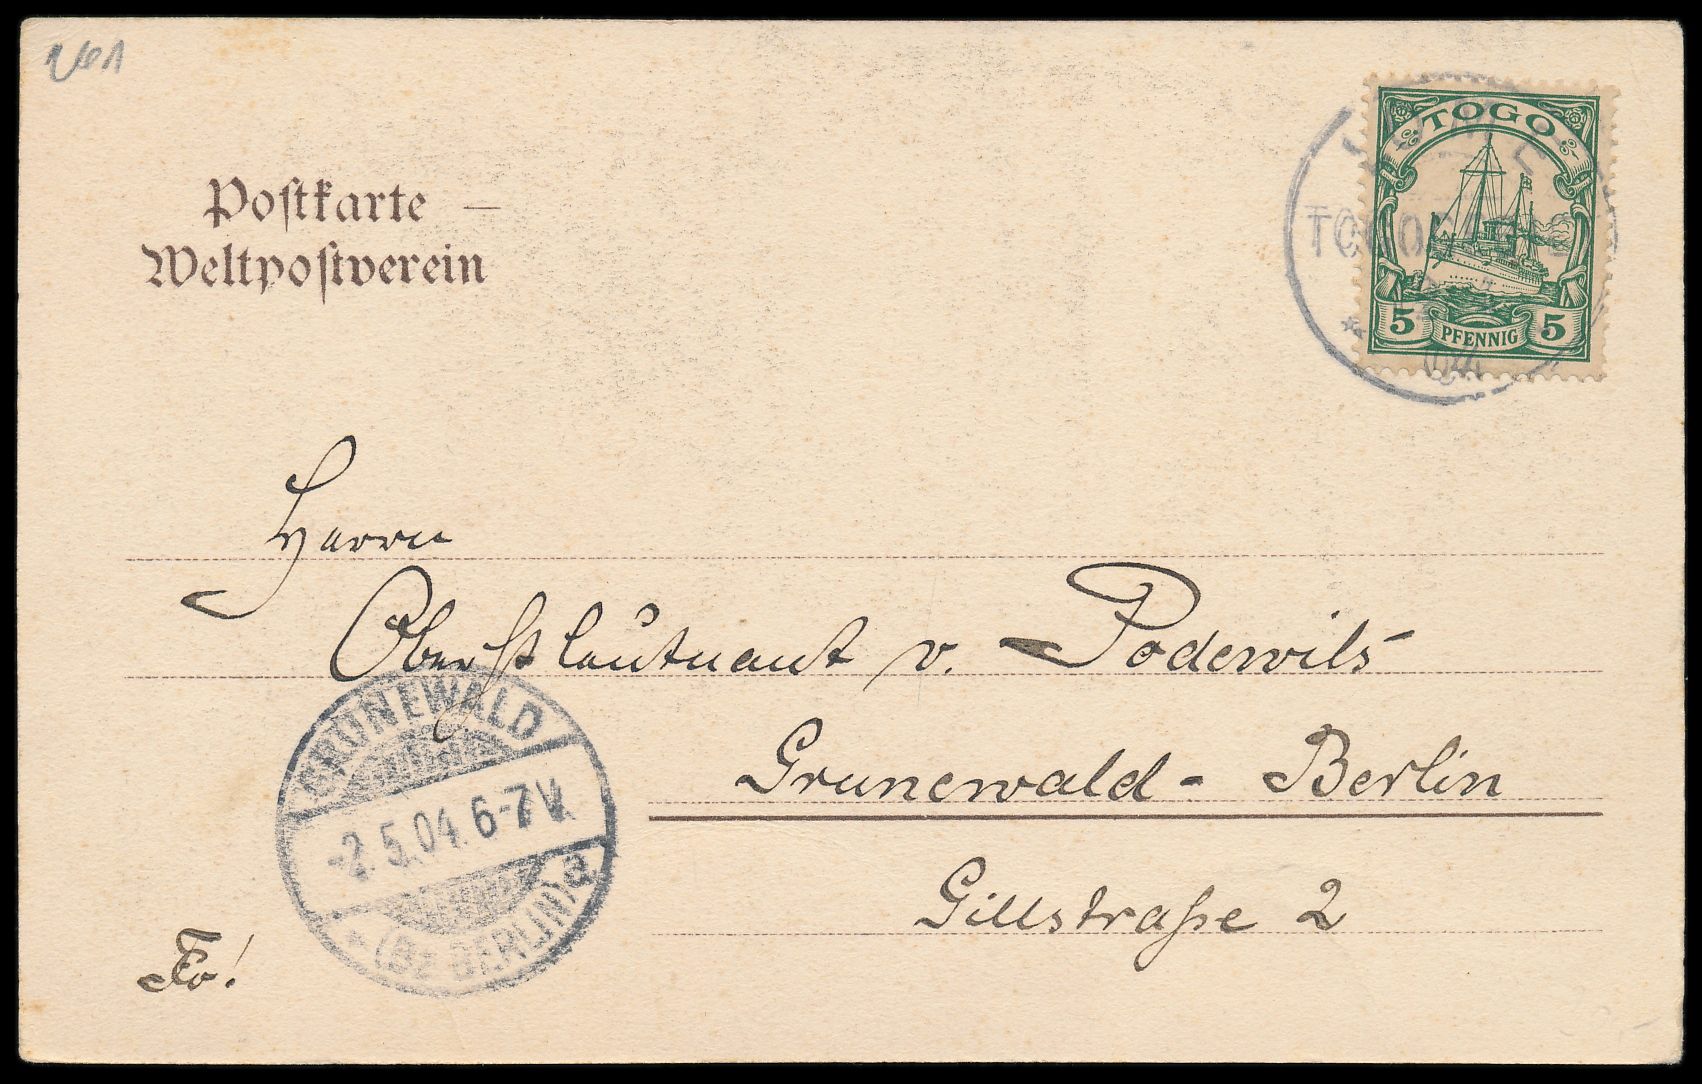 TOGO
5 PFENNIG 5
04
Postkarte —
Weltpostverein
Herrn
Oberstleutnant v. Podewils
Grunewald - Berlin
Gillstraße 2
GRUNEWALD
-2.5.04. 6-7 V.
* (Bz BERLIN) a